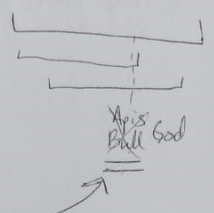 Apis
Bull God